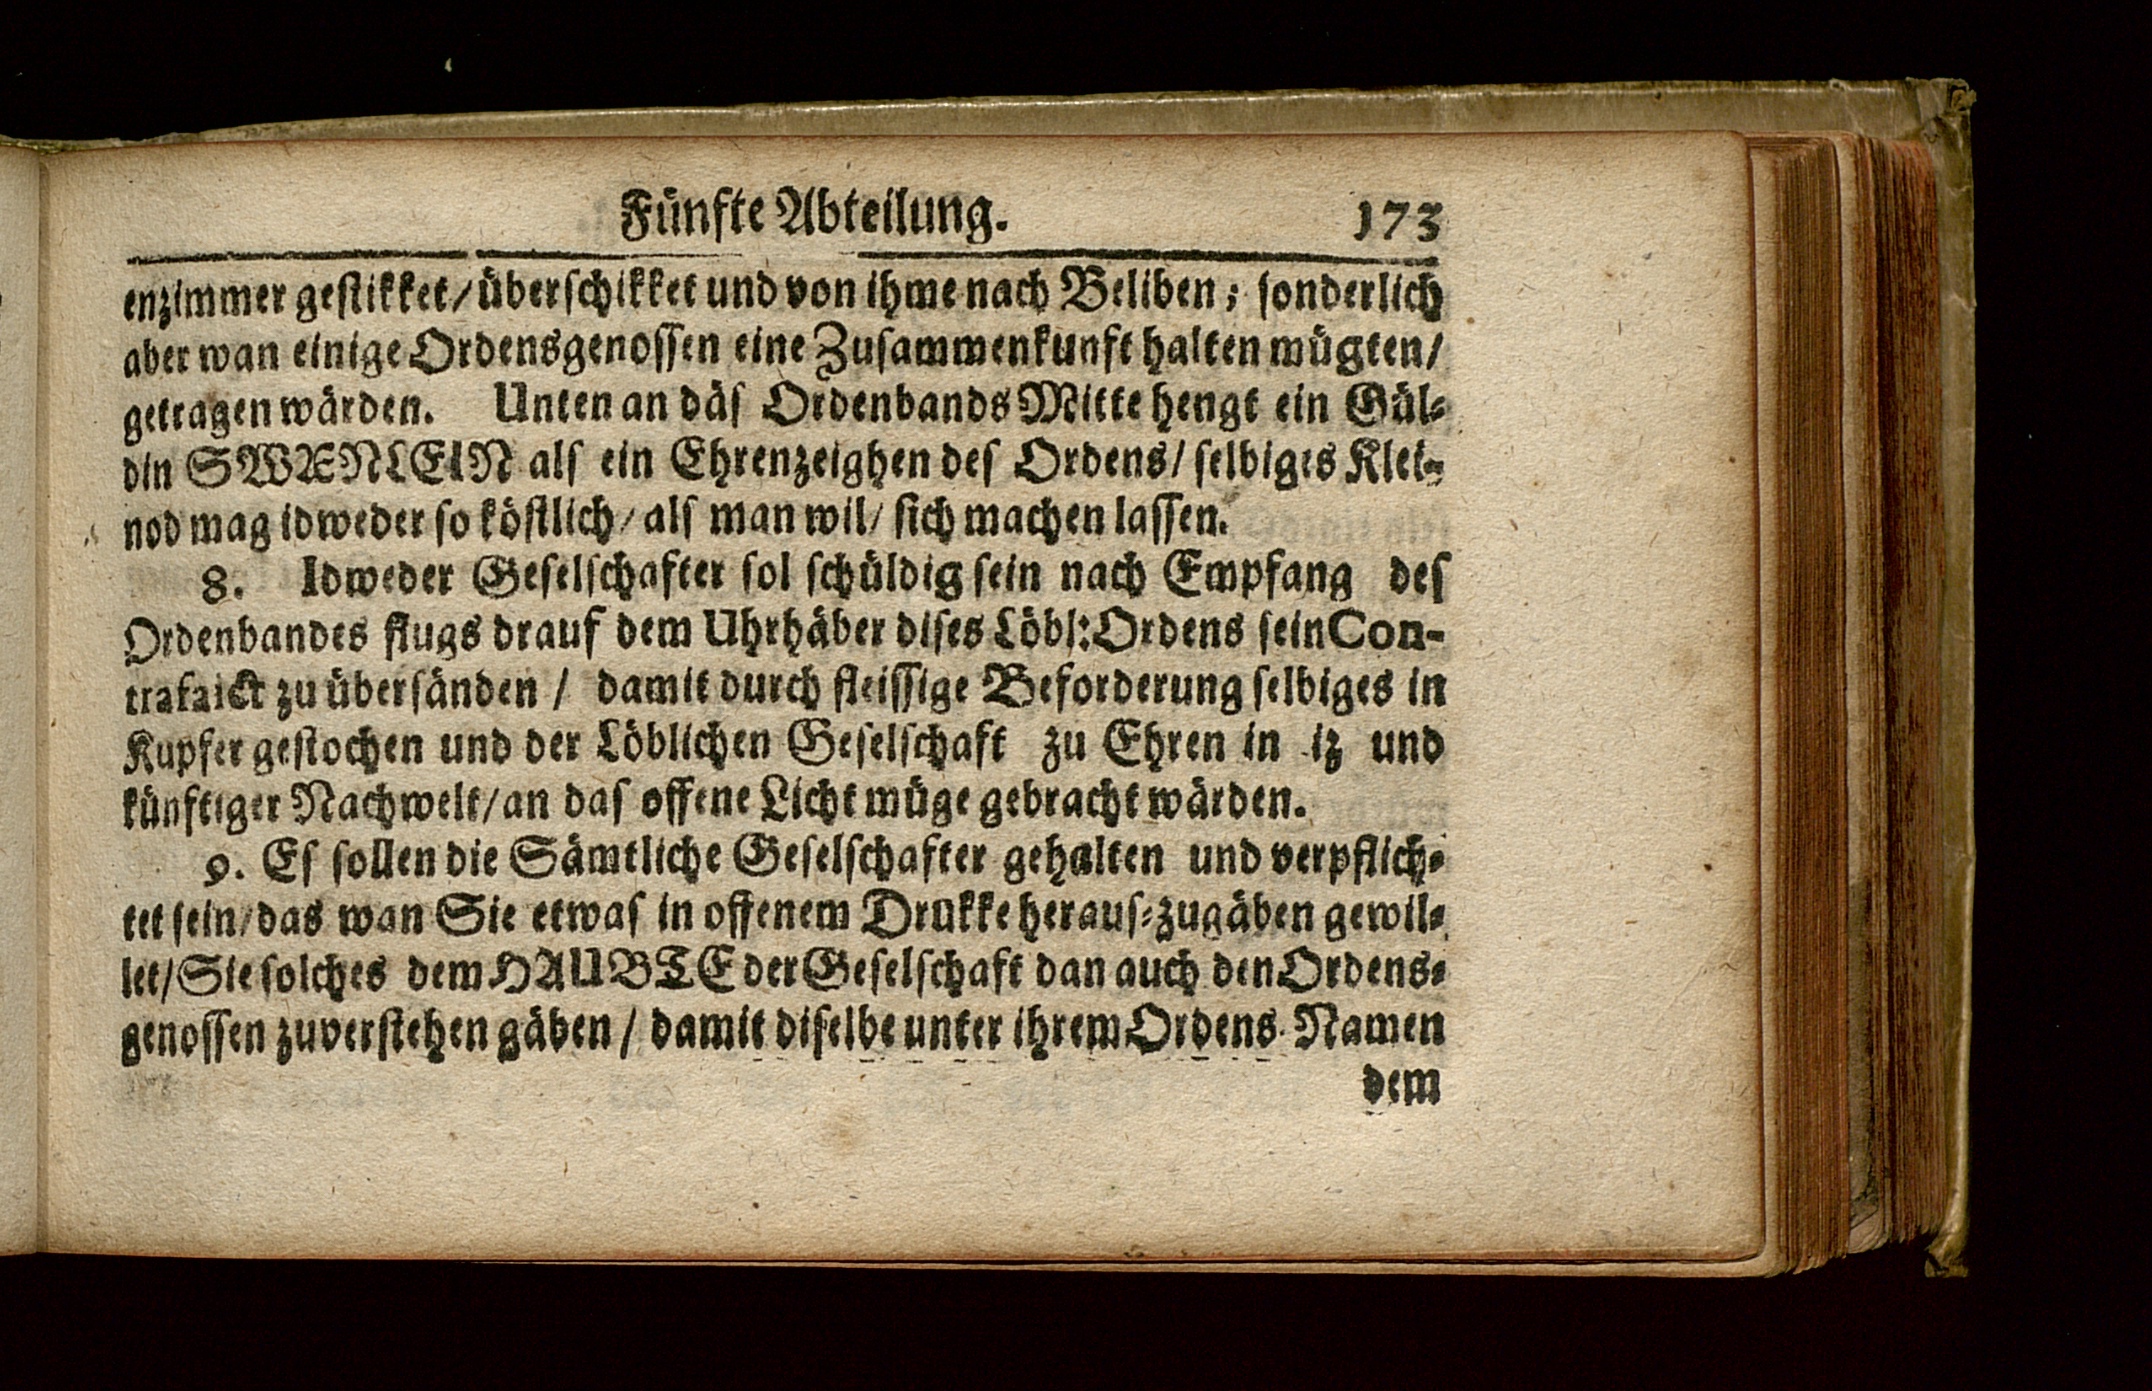 Fünfte Abteilung. 173
enzimmer geſtikket/überſchikket und von ihme nach Beliben; ſonderlich
aber wan einige Ordensgenoſſen eine Zuſammenkunft halten mügten/
getragen wärden. Unten an däſ Ordenbands Mitte hengt ein Gül⸗
din SWÆNLEIN alſ ein Ehrenzeighen deſ Ordens/ ſelbiges Klei⸗
nod mag idweder ſo köſtlich/ alſ man wil/ ſich machen laſſen.
8. Idweder Geſelſchafter ſol ſchüldig ſein nach Empfang deſ
Ordenbandes flugs drauf dem Uhrhäber diſes Löbl: Ordens ſein Con-
trafaict zu überſänden / damit durch fleiſſige Beforderung ſelbiges in
Kupfer geſtochen und der Löblichen Geſelſchaft zu Ehren in iz und
künftiger Nachwelt/an daſ offene Licht müge gebracht wärden.
9. Eſ ſollen die Sämtliche Geſelſchafter gehalten und verpflich⸗
tet ſein/das wan Sie etwaſ in offenem Drukke herauſ⸗zugäben gewil⸗
let/Sie ſolches dem HAUBTE der Geſelſchaft dan auch den Ordens⸗
genoſſen zuverſtehen gäben / damit diſelbe unter ihrem Ordens Namen
dem